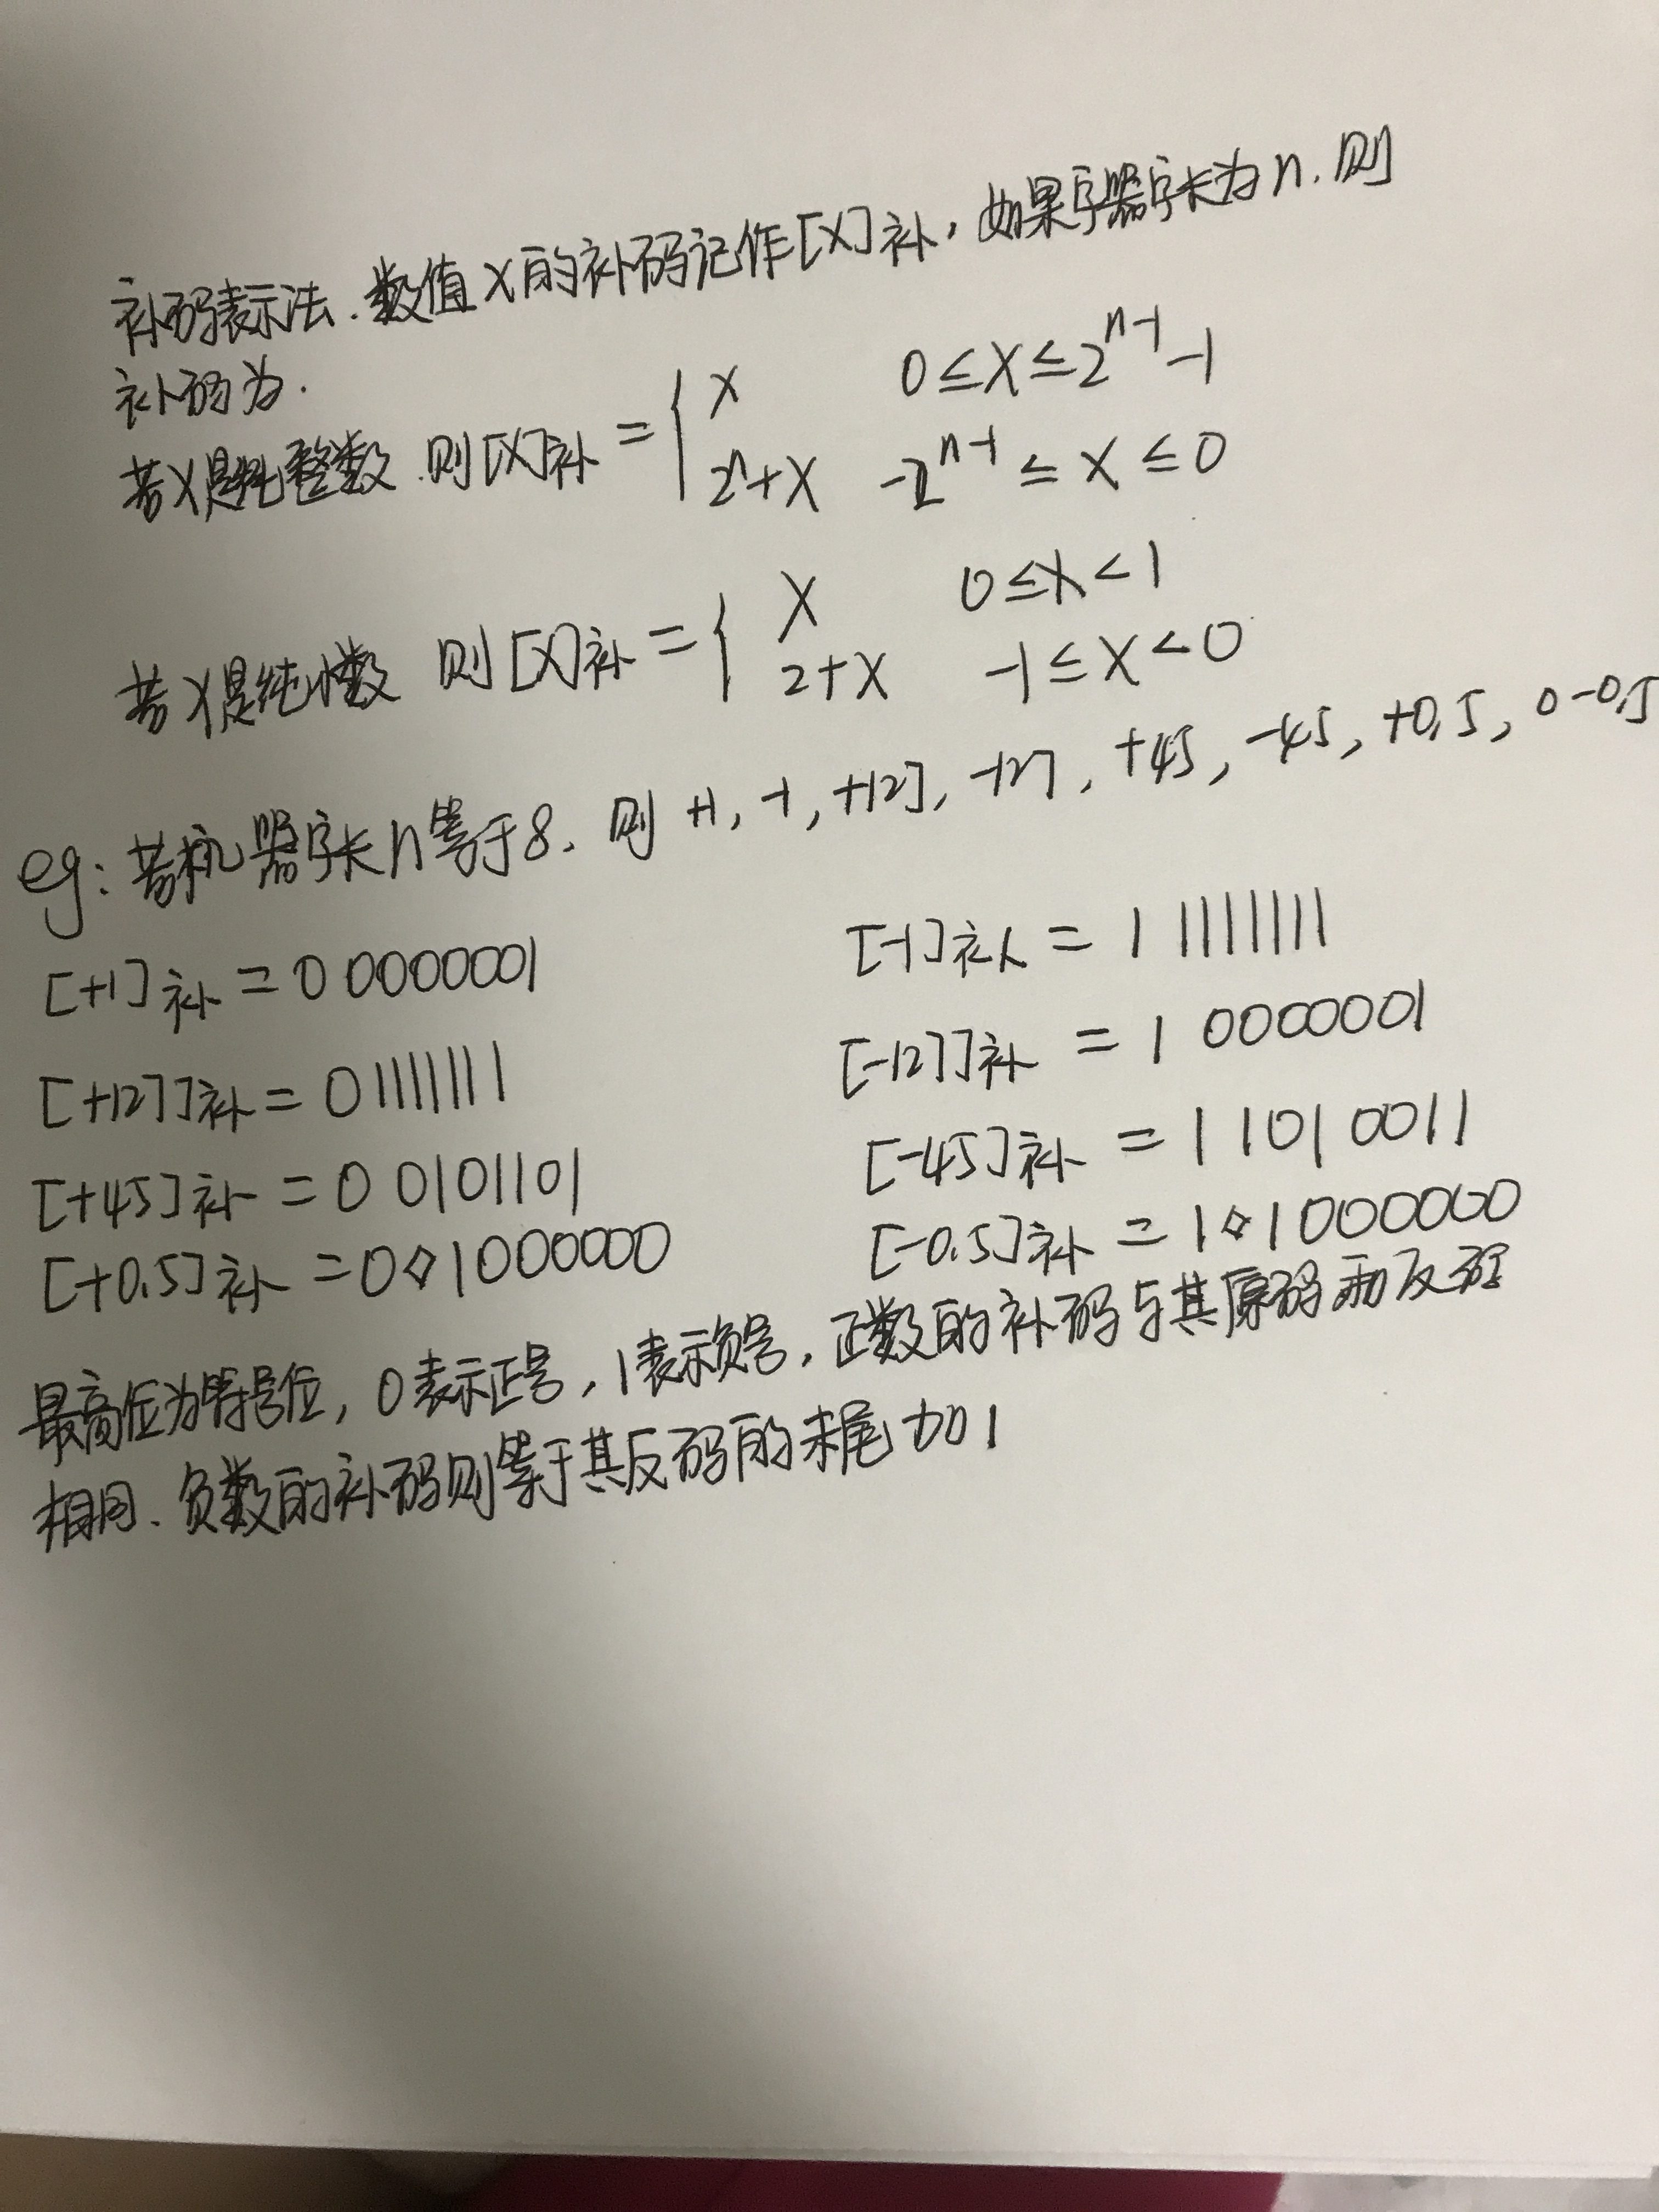 补码表示法.数值X的补码记作[X]补,如果字器字长为n.则
补码为.
若X是纯整数.则[X]补 = { X 0≤X≤2^{n-1}-1
2^n+X -2^{n-1}≤X≤0
若X是纯小数 则[X]补 = { X 0≤X<1
2+X -1≤X<0
eg:若机器字长n等于8.则 +1,-1,+127,-127,+45,-45,+0.5,0-0.5
[+1]补=0 0000001 [-1]补=1 1111111
[+127]补=01111111 [-127]补=1 0000001
[+45]补=0 0101101 [-45]补=1 1010011
[+0.5]补=0◇1000000 [-0.5]补=1◇1000000
最高位为符号位,0表示正号,1表示负号,正数的补码与其原码和反码
相同.负数的补码则等于其反码的末尾加1